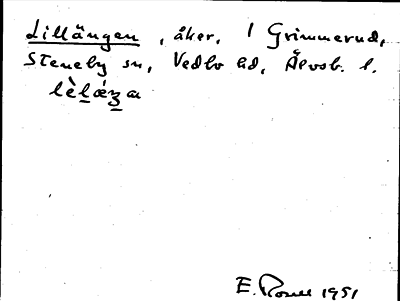 Lillängen, åker, 1 Grimmerud,
Steneby sn, Vedbo hd, Älvsb. l.
lèlǽnza
E. 1951